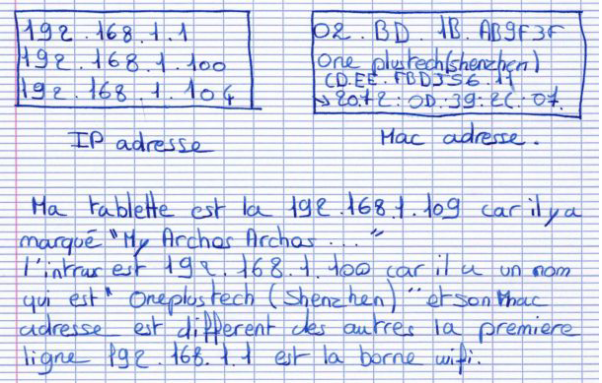 192.168.1.1
192.168.1.100
192.168.1.104
IP adresse
02.BD.1B.AB9F3F
One plustech(shenzhen)
CD.EE.FBD3S6.11
↳ 2012:0D:39:2C:07.
Mac adresse.
Ma tablette est la 192.168.1.109 car il y a
marqué "My Archos Archos ..."
l'intrus est 192.168.1.100 car il a un nom
qui est "Oneplustech (Shenzhen)" et son Mac
adresse est different des autres la premiere
ligne 192.168.1.1 est la borne wifi.